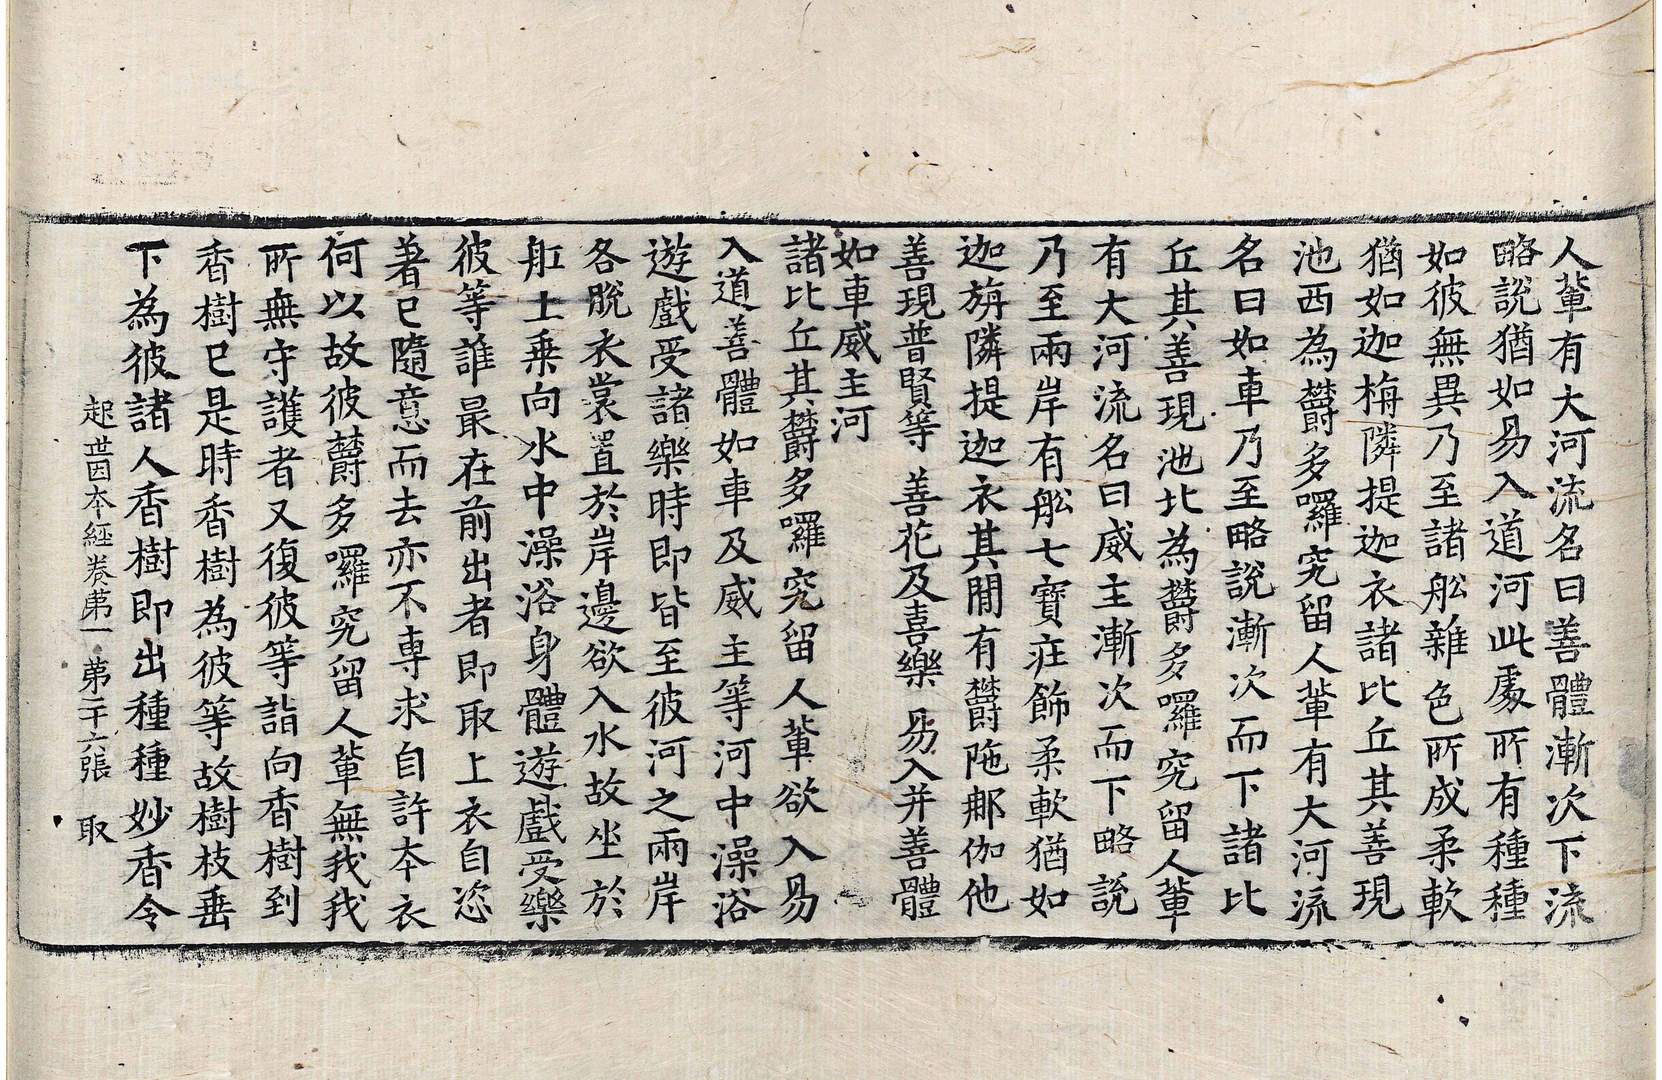 人輩有大河流名曰善體漸次下流
略說猶如易入道河此處所有種種
如彼無異乃至諸舩雜色所成柔軟
猶如迦旃隣提迦衣諸比丘其善現
池西為欝多囉究留人輩有大河流
名曰如車乃至略說漸次而下諸比
丘其善現池北為欝多囉究留人輩
有大河流名曰威主漸次而下略說
乃至兩岸有舩七寶莊飾柔軟猶如
迦旃隣提迦衣其間有欝陁那伽他
善現普賢等 善花及喜樂 易入并善體
如車威主河
諸比丘其欝多囉究留人輩欲入易
入道善體如車及威主等河中澡浴
遊戲受諸樂時即皆至彼河之兩岸
各脫衣裳置於岸邊欲入水故坐於
舡上乗向水中澡浴身體遊戲受樂
彼等誰最在前出者即取上衣自恣
著已隨意而去亦不專求自許本衣
何以故彼欝多囉究留人輩無我我
所無守護者又復彼等詣向香樹到
香樹已是時香樹為彼等故樹枝垂
下為彼諸人香樹即出種種妙香令
起世因本經卷第一 第二十六張 取